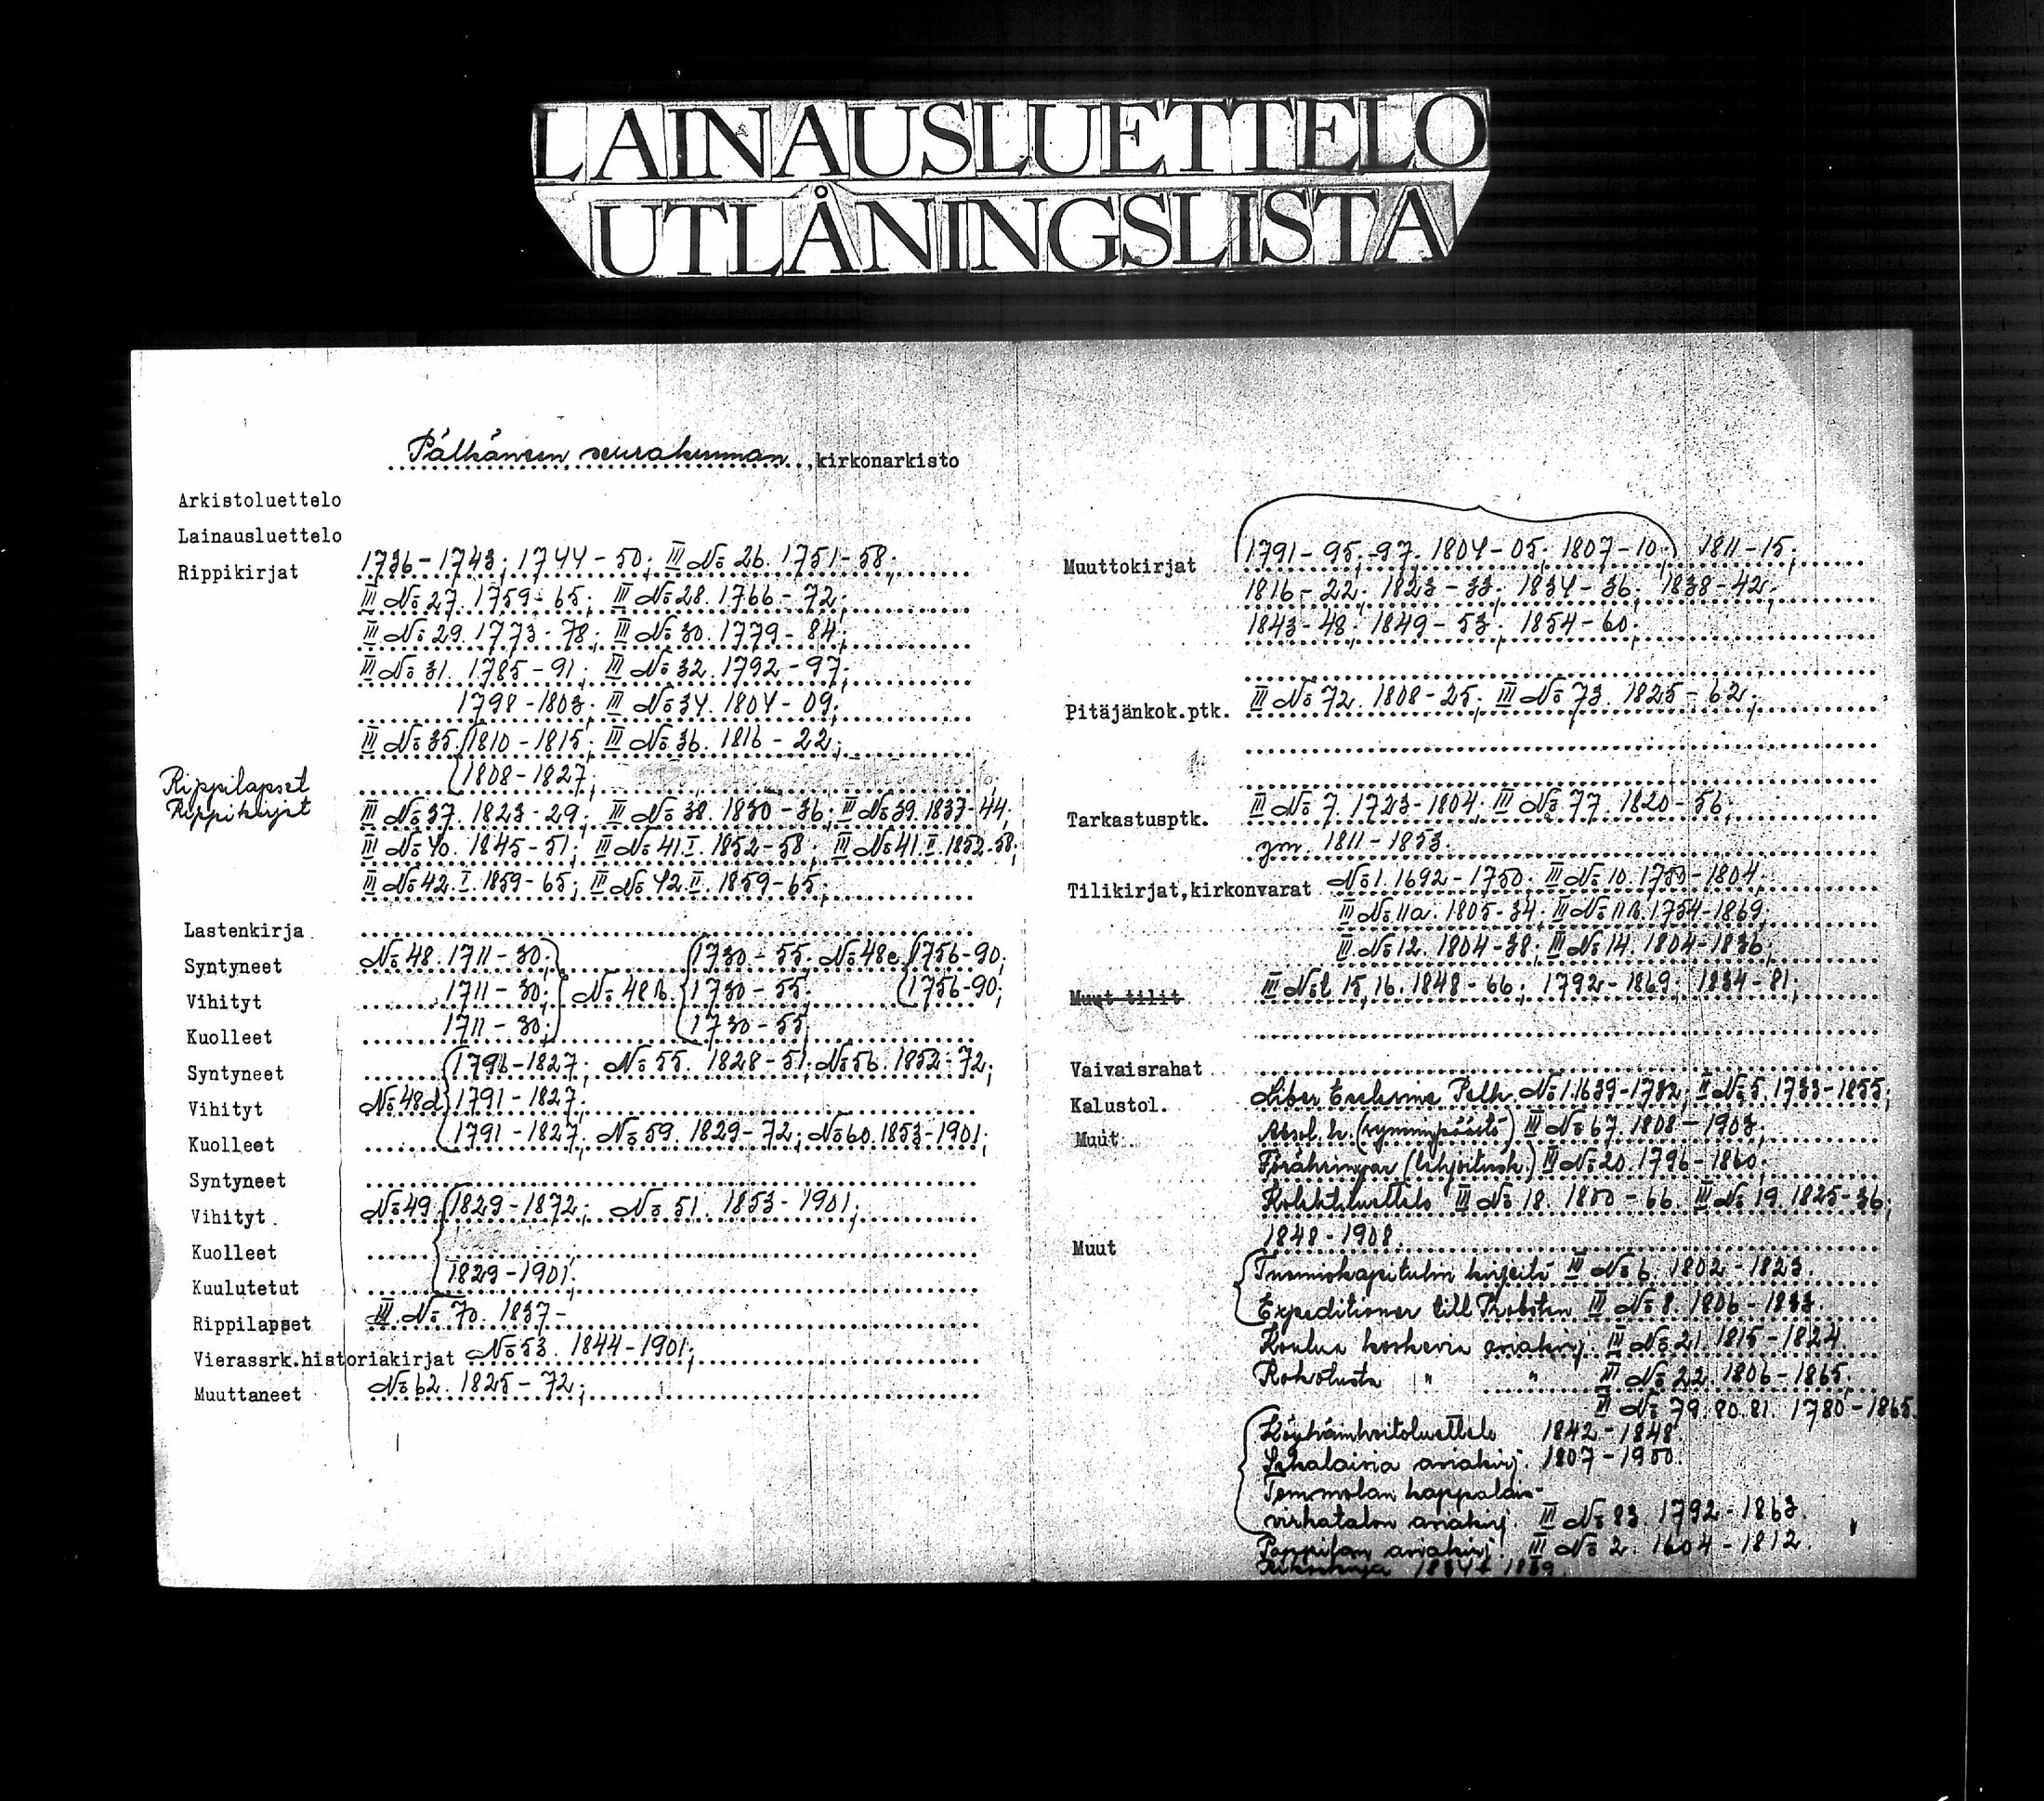 LAINAUSLUETTELO
UTLÅNINGSLISTA
Pälkäneen seurakunnan kirkonarkisto
Arkistoluettelo
Lainausluettelo
Rippikirjat 1736-1743; 1744-50; III No 26. 1751-58;
III No 27. 1759-65; III No 28. 1766-72;
III No 29. 1773-78; III No 30. 1779-84;
III No 31. 1785-91; III No 32. 1792-97;
1798-1803; III No 34. 1804-09;
III No 35. 1810-1815; III No 36. 1816-22;
Rippilapset 1808-1827;
Rippikirjat III No 37. 1823-29; III No 38. 1830-36; III No 39. 1837-44;
III No 40. 1845-51; III No 41.I. 1852-58; III No 41.II. 1852-58;
III No 42.I. 1859-65; III No 42.II. 1859-65;
Lastenkirja
Syntyneet No 48. 1711-30; 1730-55; No 48c. 1756-90;
Vihityt 1711-30; No 48b. 1730-55; 1756-90;
Kuolleet 1711-30; 1730-55
Syntyneet 1796-1827; No 55. 1828-51; No 56. 1852-72;
Vihityt No 48d 1791-1827;
Kuolleet 1791-1827; No 59. 1829-72; No 60. 1853-1901;
Syntyneet
Vihityt No 49 1829-1872; No 51. 1853-1901;
Kuolleet
Kuulutetut 1829-1901;
Rippilapset III No 70. 1837-
Vierassrk.historiakirjat No 53. 1844-1901;
Muuttaneet No 62. 1825-72;
Muuttokirjat 1791-95; -97; 1804-05; 1807-10; 1811-15;
1816-22; 1823-33; 1834-36; 1838-42;
1843-48; 1849-53; 1854-60;
Pitäjänkok.ptk. III No 72. 1808-25; III No 73. 1825-62;
Tarkastusptk. III No 7. 1723-1804; III No 77. 1820-56;
ym. 1811-1853.
Tilikirjat,kirkonvarat No 1. 1692-1750; III No 10. 1750-1804;
III No 11a. 1805-34; III No 11b. 1754-1869;
III No 12. 1804-38; III No 14. 1804-1836;
Muut tilit III No 15, 16. 1848-66; 1792-1869; 1834-81;
Vaivaisrahat
Kalustol. Liber Ecclesiae Pelk. No 1. 1639-1782; II No 5. 1733-1855;
Muut Absol. k. (synninpäästö) III No 67. 1808-1903;
Föräringar (lahjoitusk.) III No 20. 1796-1860;
Kolehtiluettelo III No 18. 1800-66. III No 19. 1825-36;
Muut 1848-1908.
Tuomiokapitulin kirjeitä III No 6. 1802-1823.
Expeditioner till Probsten III No 8. 1806-1833.
Koulua koskevia asiakirj. III No 21. 1815-1824
Rokotusta " " III No 22. 1806-1865;
III No 79.80.81. 1780-1865.
Köyhäinhoitoluettelo 1842-1848.
Sekalaisia asiakirj. 1807-1900.
Tommolan kappalais-
virkatalon asiakirj. III No 83. 1792-1863.
Pappilan asiakirj. III No 2. 1604-1812.